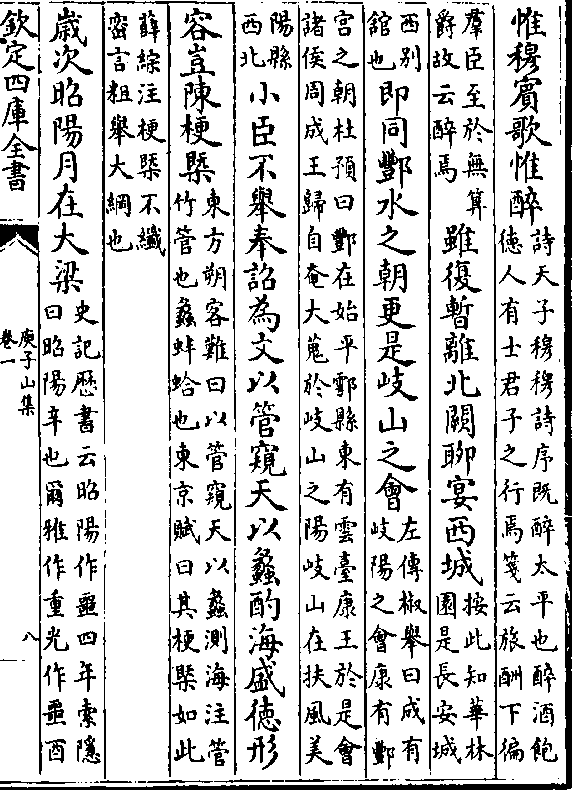 惟穆賓歌惟醉詩天子穆穆詩序既醉太平也醉酒飽
徳人有士君子之行焉箋云旅酬下徧
羣臣至於無算
爵故云醉焉雖復暫離北闕聊宴西城按此知華林
園是長安城
西别
舘也即同酆水之朝更是岐山之會左傳椒舉曰成有
岐陽之會康有酆
宫之朝杜預曰酆在始平鄠縣東有雲臺康王於是會
諸侯周成王歸自奄大蒐於岐山之陽岐山在扶風美
陽縣
西北小臣不舉奉詔為文以管窺天以蠡酌海盛徳形
容豈陳梗槩東方朔客難曰以管窺天以蠡測海注管
竹管也蠡蚌蛤也東京賦曰其梗槩如此
薛綜注梗槩不纖
宻言粗舉大綱也
歲次昭陽月在大梁史記歴書云昭陽作噩四年索隱
曰昭陽辛也爾雅作重光作噩酉
欽定四庫全書
庾子山集
卷一
八